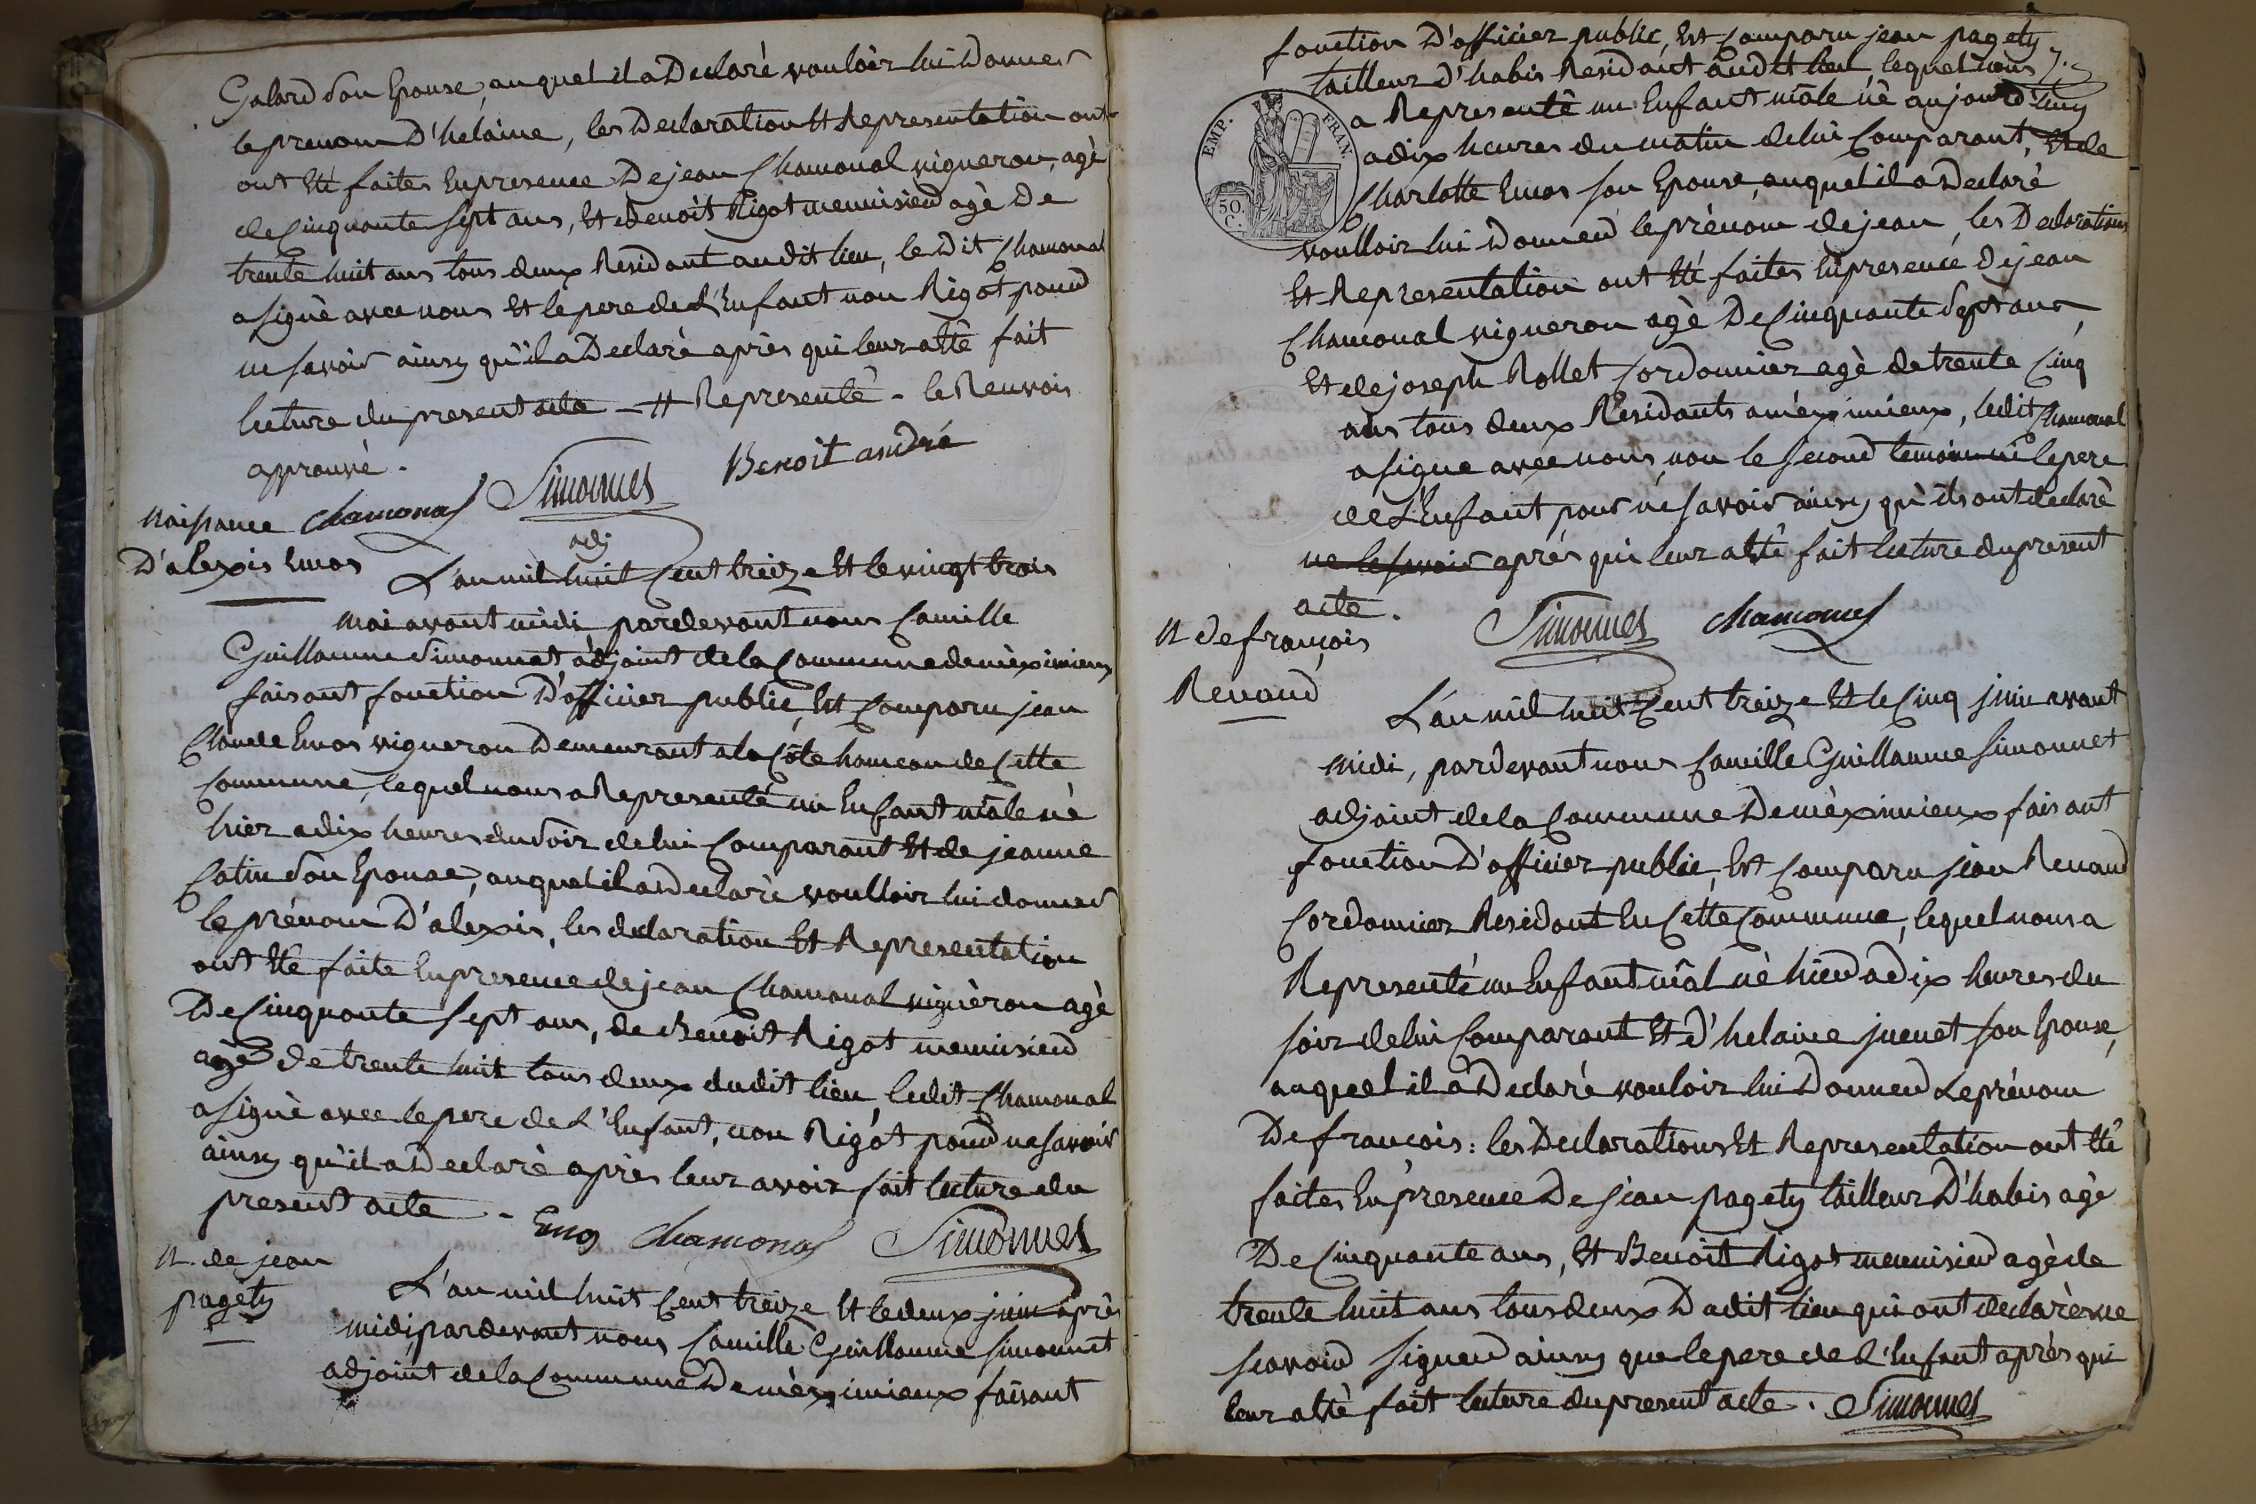 Galard Son Epouse, auquel il a Declaré vouloir lui Donner
le prenom D'helaine, les Declaration Et Representation ont
ont Eté faites En presence De jean Chamonal vigneron, agé
de Cinquante Sept ans, Et Benoit Rigot menuisier agè De
trente huit ans tous deux Residant audit lieu, le Dit Chamonal
a signè avec nous Et le pere de L'Enfant non Rigot pour
ne savoir ainsy qu'il a Declaré après qui leur a Eté fait
lecture du present acte - # Representé - le Renvois
approuvé.
Benoit andré
Simonnet
adj
Naissance Chamonal
D'alexis Emos
L'an mil huit Cent treize Et le vingt trois
mai avant midi pardevant nous Camille
Guillaume Simonnet adjoint de la Commune de mèximieux
faisant fonction D'officier public, Est Comparu jean
Claude Emos vigneron Demeurant a la Côte hameau de Cette
Commune, lequel nous a Representé un Enfant mâle né
hier a dix heures du soir de lui Comparant Et de jeanne
Catin Son Epouse, auquel il a Declaré voulloir lui donner
le prénom D'alexis, les declaration Et Representation
ont Eté faite En presence de jean Chamonal vigneron agé
De Cinquante Sept ans, de Benoit Rigot menuisier
agé de trente huit tous deux dudit lieu, ledit Chamonal
a signè avec le pere de L'Enfant, non Rigot pour ne savoir
ainsy qu'il a Declaré après leur avoir fait lecture du
present acte - Emos Chamonal Simonnet
N. de jean
pagety
L'an mil huit Cent treize Et le deux juin après
midi, pardevant nous Camille Guillaume Simonnet
adjoint de la Commune De mèximieux faisant
fonction D'officier public, Est Comparu jean pagety
tailleur D'habis Residant audit lieu, lequel nous
7.
a Representé un Enfant mâle né aujourd'huy
a dix heures du matin de lui Comparant, Et de
EMP. FRAN.
50. C.
Charlotte Emos son Epouse, auquel il a Declaré
voulloir lui Donner le prénom de jean, les Declarations
Et Representation ont Eté faites En presence De jean
Chamonal vigneron agè De Cinquante Sept ans,
Et de joseph Rollet Cordonnier agè de trente Cinq
ans tous deux Residants a méximieux, ledit Chamonal
a signe avec nous, non le second temoin ni le pere
de L'Enfant pour ne savoir ainsy qu'ils ont declaré
ne le savoir après qui leur a Eté fait lecture du present
acte.
Simonnet Chamonal
N de françois
Renaud
L'an mil huit Cent treize Et le Cinq juin avant
midi, pardevant nous Camille Guillaume Simonnet
adjoint de la Commune De mèximieux faisant
fonction D'officier public, Est Comparu jean Renaud
Cordonnier Residant En Cette Commune, lequel nous a
Representé un Enfant mâl né hier a dix heures du
soir de lui Comparant Et D'helaine juenet son Epouse,
auquel il a Declaré vouloir lui Donner Le prénom
De françois: les Declarations Et Representation ont Eté
faites En presence De jean pagety tailleur D'habis agè
De Cinquante ans, Et Benoit Rigot menuisier agè de
trente huit ans tous deux Dudit lieu qui ont declaré ne
scavoir signer ainsy que le pere de L'Enfant après qui
leur a Eté fait lecture du present acte. Simonnet